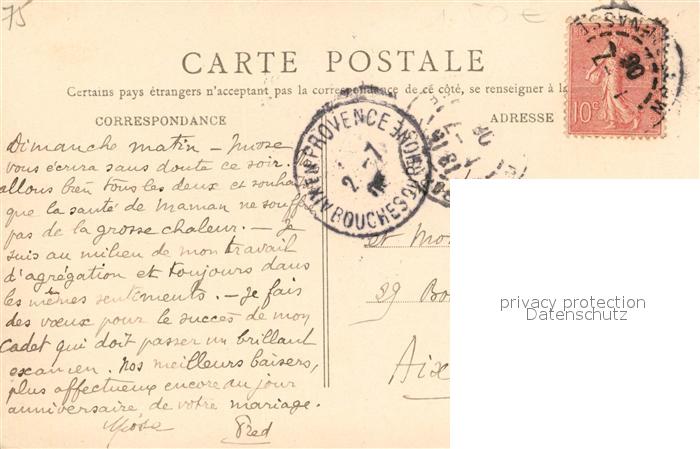 75
CARTE POSTALE
Certains pays étrangers n'acceptant pas la correspondance de ce côté, se renseigner à la
CORRESPONDANCE
ADRESSE
10c
AIX EN PROVENCE
BOUCHES DU RHONE
2 - 7
Dimanche matin –
vous écrira sans doute ce soir.
allons bien tous les deux et souhait
que la santé de Maman ne souffre
pas de la grosse chaleur. – Je
suis au milieu de mon travail
d'agrégation et toujours dans
les mêmes sentiments. – Je fais
des vœux pour le succès de mon
Cadet qui doit passer un brillant
examen. Nos meilleurs baisers,
plus affectueux encore au jour
anniversaire de votre mariage.
Fred
et Mo
29 Bo
Aix
privacy protection
Datenschutz